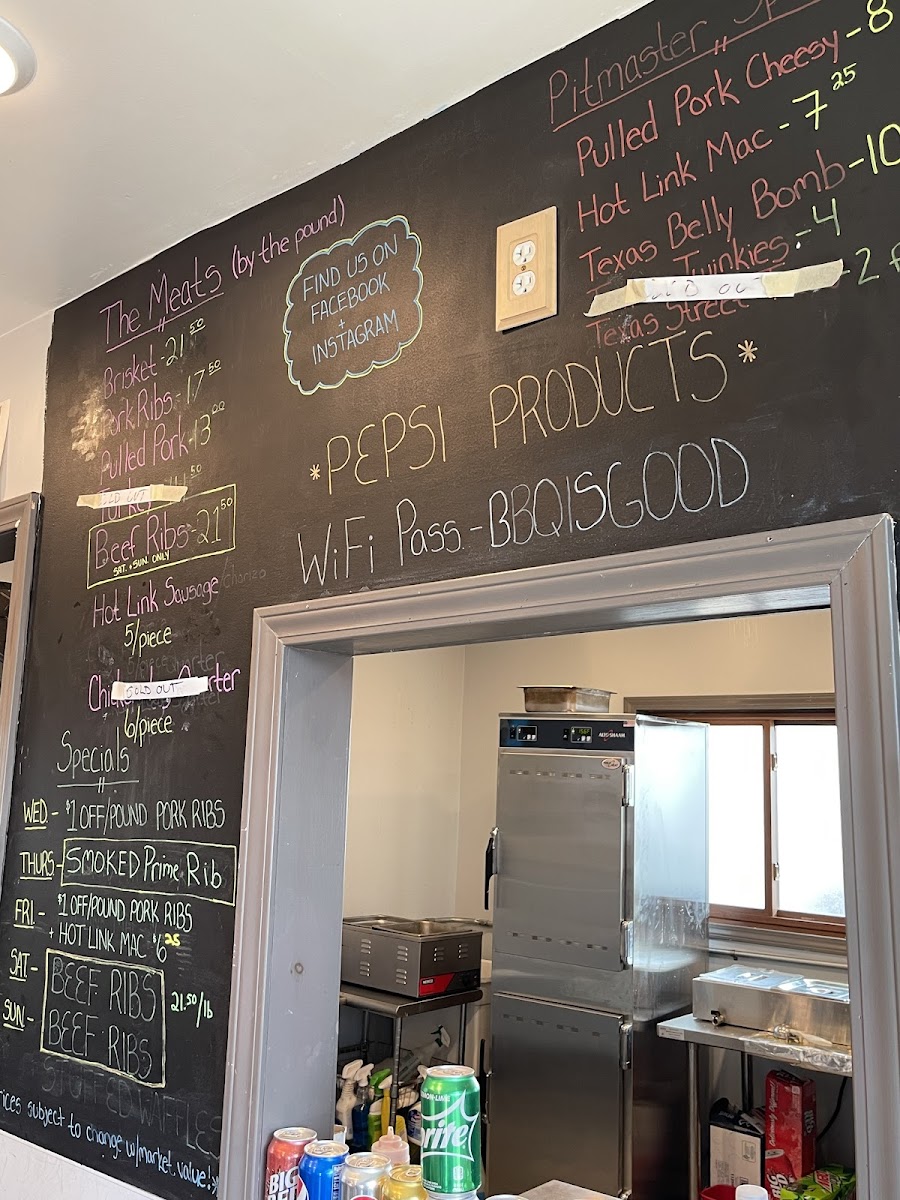 The Meats (by the pound)
Brisket - 21.50
Pork Ribs - 17.50
Pulled Pork - 13.00
Turkey
SOLD OUT
Beef Ribs - 21.50
SAT. + SUN. ONLY
Hot Link Sausage
5/piece
SOLD OUT
6/piece
Specials
WED. - $1 OFF/POUND PORK RIBS
THURS - SMOKED Prime Rib
FRI. - $1 OFF/POUND PORK RIBS
+ HOT LINK MAC $6.25
SAT - BEEF RIBS
21.50/lb
SUN - BEEF RIBS
STUFFED WAFFLES
subject to change w/market value!
FIND US ON
FACEBOOK
+
INSTAGRAM
Pitmaster
Pulled Pork Cheesy - 8
Hot Link Mac - 7.25
Texas Belly Bomb - 10
Twinkies - 4
OUT
2
Texas Street
*PEPSI PRODUCTS*
WiFi Pass. - BBQISGOOD
ALTO-SHAAM
BIG